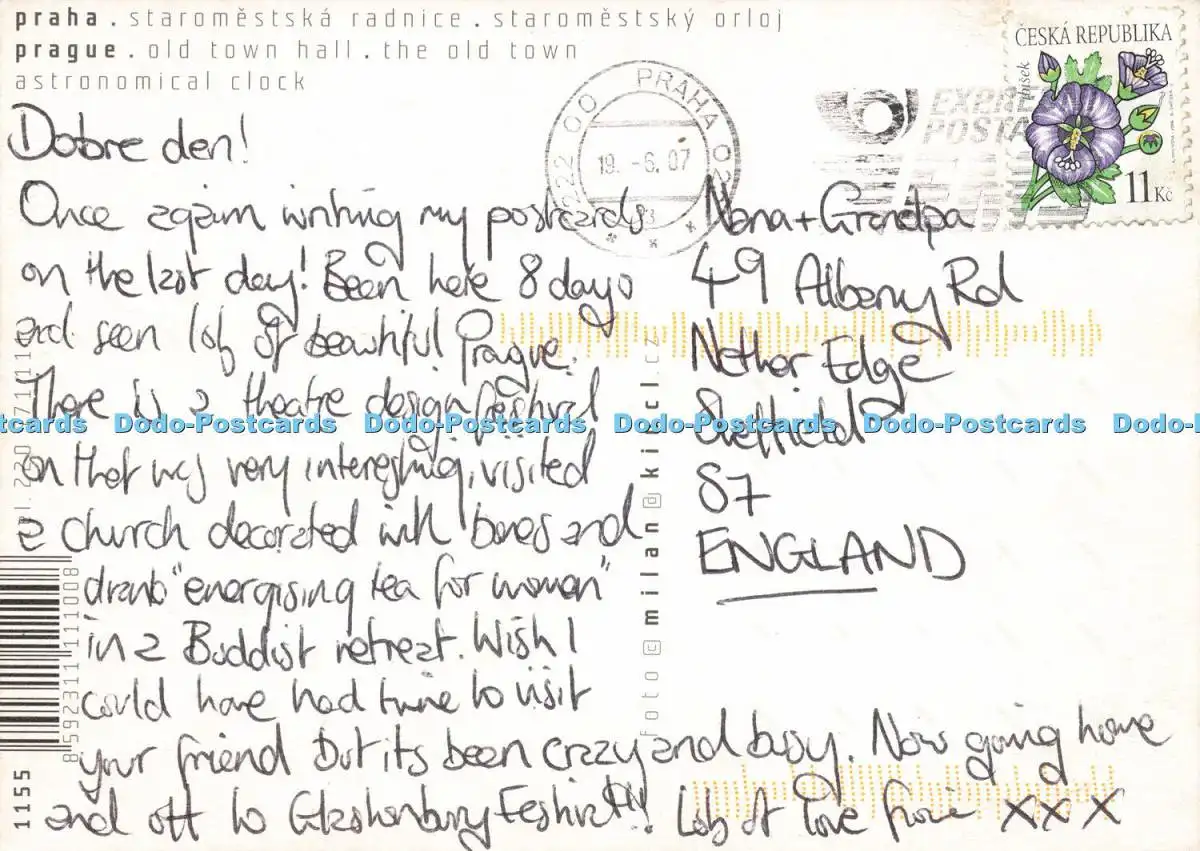 praha . staroměstská radnice . staroměstský orloj
prague . old town hall . the old town
astronomical clock
Dobre den!
Once again writing my postcards
on the last day! Been here 8 days
and seen lots of beautiful Prague.
There is a theatre design festival
on that was very interesting, visited
a church decorated with bones and
drank "energising tea for women"
in a Buddist retreat. Wish I
could have had time to visit
your friend but its been crazy and busy. Now going home
and off to Glastonbury Festival!!! Lots of love xxx
Nana + Grandpa
49 Albany Rd
Nether Edge
Sheffield
S7
ENGLAND
PRAHA 02
19.-6.07
EXPRES
POSTA
ČESKÁ REPUBLIKA
Ibišek
11 Kč
foto @ milan@kincl.cz
8592311111008
1155
Dodo-Postcards Dodo-Postcards Dodo-Postcards Dodo-Postcards